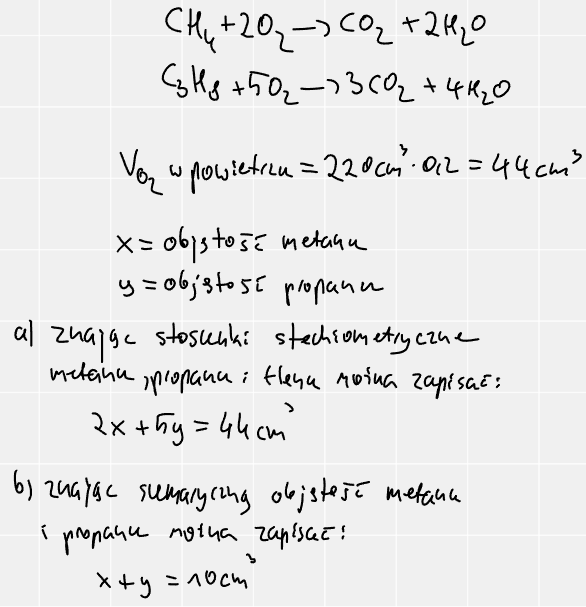 CH₄ + 2O₂ → CO₂ + 2H₂O
C₃H₈ + 5O₂ → 3CO₂ + 4H₂O
V_O₂ w powietrzu = 220cm³ · 0,2 = 44cm³
x = objętość metanu
y = objętość propanu
a) znając stosunki stechiometryczne
metanu, propanu i tlenu można zapisać:
2x + 5y = 44cm³
b) znając sumaryczną objętość metanu
i propanu można zapisać:
x + y = 10cm³